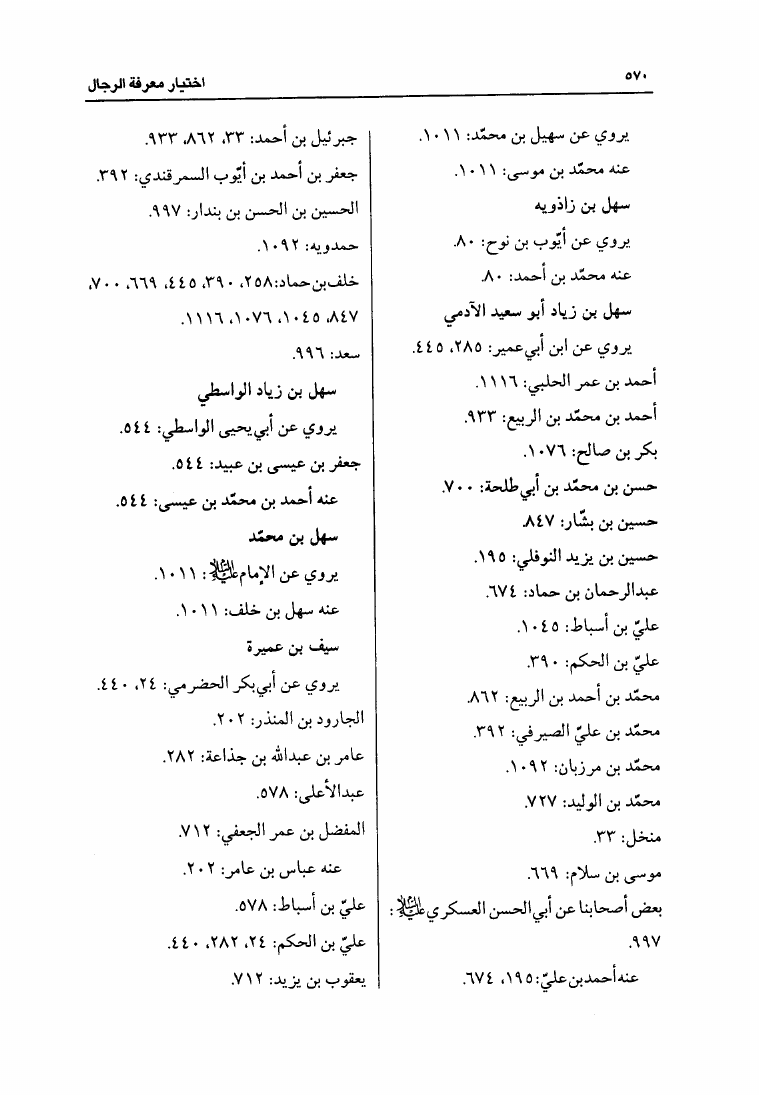 ٥٧٠
اختيار معرفة الرجال
يروي عن سهيل بن محمّد: ١٠١١.
عنه محمّد بن موسى: ١٠١١.
سهل بن زاذويه
يروي عن أيّوب بن نوح: ٨٠.
عنه محمّد بن أحمد: ٨٠.
سهل بن زياد أبو سعيد الآدمي
يروي عن ابن أبي‌عمير: ٢٨٥، ٤٤٥.
أحمد بن عمر الحلبي: ١١١٦.
أحمد بن محمّد بن الربيع: ٩٣٣.
بكر بن صالح: ١٠٧٦.
حسن بن محمّد بن أبي‌طلحة: ٧٠٠.
حسين بن بشّار: ٨٤٧.
حسين بن يزيد النوفلي: ١٩٥.
عبدالرحمان بن حماد: ٦٧٤.
عليّ بن أسباط: ١٠٤٥.
عليّ بن الحكم: ٣٩٠.
محمّد بن أحمد بن الربيع: ٨٦٢.
محمّد بن عليّ الصيرفي: ٣٩٢.
محمّد بن مرزبان: ١٠٩٢.
محمّد بن الوليد: ٧٢٧.
منخل: ٣٣.
موسى بن سلام: ٦٦٩.
بعض أصحابنا عن أبي‌الحسن العسكري عليه السلام:
٩٩٧.
عنه أحمد بن عليّ: ١٩٥، ٦٧٤.
جبرئيل بن أحمد: ٣٣، ٨٦٢، ٩٣٣.
جعفر بن أحمد بن أيّوب السمرقندي: ٣٩٢.
الحسين بن الحسن بن بندار: ٩٩٧.
حمدويه: ١٠٩٢.
خلف بن حماد: ٢٥٨، ٣٩٠، ٤٤٥، ٦٦٩، ٧٠٠،
٨٤٧، ١٠٤٥، ١٠٧٦، ١١١٦.
سعد: ٩٩٦.
سهل بن زياد الواسطي
يروي عن أبي‌يحيى الواسطي: ٥٤٤.
جعفر بن عيسى بن عبيد: ٥٤٤.
عنه أحمد بن محمّد بن عيسى: ٥٤٤.
سهل بن محمّد
يروي عن الإمام عليه السلام: ١٠١١.
عنه سهل بن خلف: ١٠١١.
سيف بن عميرة
يروي عن أبي‌بكر الحضرمي: ٢٤، ٤٤٠.
الجارود بن المنذر: ٢٠٢.
عامر بن عبدالله بن جذاعة: ٢٨٢.
عبدالأعلى: ٥٧٨.
المفضل بن عمر الجعفي: ٧١٢.
عنه عباس بن عامر: ٢٠٢.
عليّ بن أسباط: ٥٧٨.
عليّ بن الحكم: ٢٤، ٢٨٢، ٤٤٠.
يعقوب بن يزيد: ٧١٢.